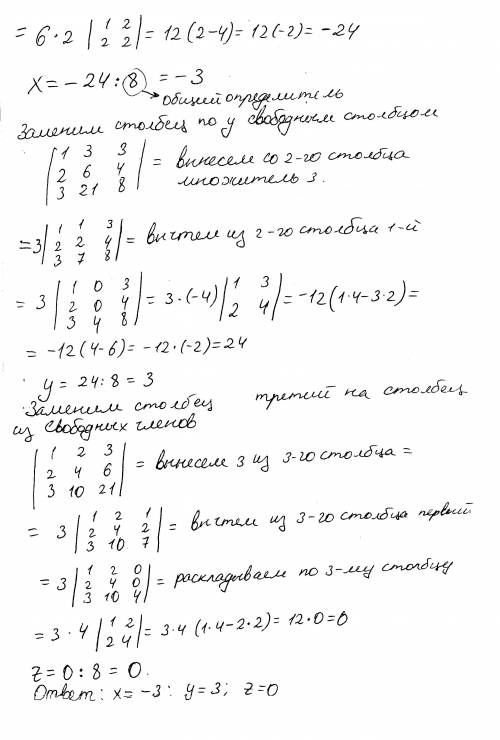 = 6·2 | 1 2 | = 12(2-4) = 12(-2) = -24
| 2 2 |
x = -24 : 8 = -3
общий определитель
Заменим столбец по y свободным столбцом
| 1 3 3 |
| 2 6 4 | = вынесем со 2-го столбца
| 3 21 8 | множитель 3.
| 1 1 3 |
= 3 | 2 2 4 | = вычтем из 2-го столбца 1-й
| 3 7 8 |
| 1 0 3 |
= 3 | 2 0 4 | = 3·(-4) | 1 3 | = -12(1·4-3·2) =
| 3 4 8 | | 2 4 |
= -12(4-6) = -12·(-2) = 24
y = 24 : 8 = 3
Заменим столбец третий на столбец
из свободных членов
| 1 2 3 |
| 2 4 6 | = вынесем 3 из 3-го столбца =
| 3 10 21 |
| 1 2 1 |
= 3 | 2 4 2 | = вычтем из 3-го столбца первый
| 3 10 7 |
| 1 2 0 |
= 3 | 2 4 0 | = раскладываем по 3-му столбцу
| 3 10 4 |
= 3·4 | 1 2 | = 3·4 (1·4-2·2) = 12·0=0
| 2 4 |
z = 0 : 8 = 0.
Ответ: x = -3: y=3; z=0